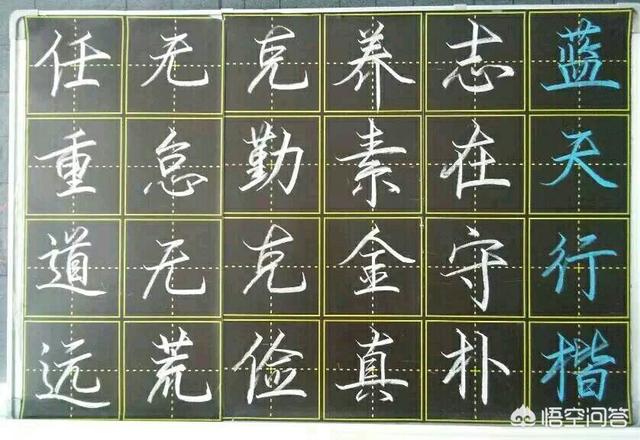 蓝天行楷
志在守朴
养素金真
克勤克俭
无怠无荒
任重道远
悟空问答